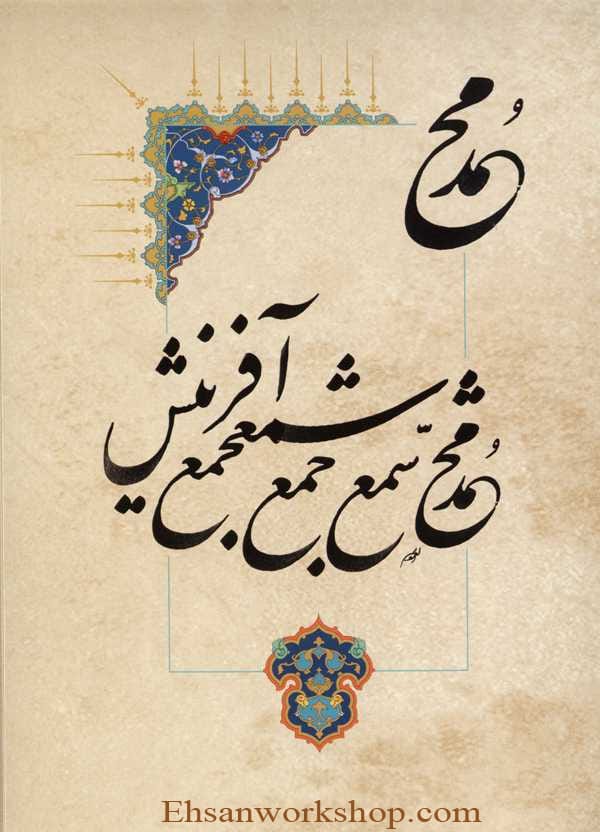 مُحمد
مُحمد شمع جمع شمع جمع آفرینش
Ehsanworkshop.com